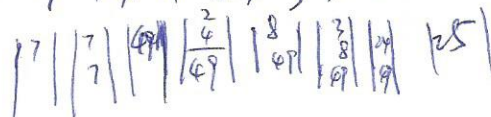 |7| |7 7| |49| |2 4 49| |8 49| |3 8 49| |24 49| |25|